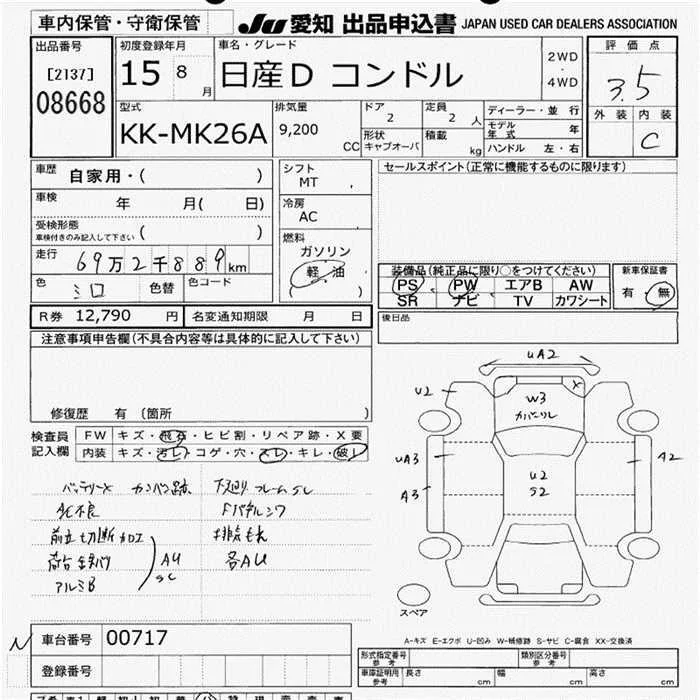 車内保管・守衛保管 JU 愛知 出品申込書 JAPAN USED CAR DEALERS ASSOCIATION
出品番号 初度登録年月 車名・グレード 評価点
[2137] 15 8月 日産D コンドル 2WD・4WD 3.5
08668
型式 排気量 ドア 定員 ディーラー・並行 外装 内装
KK-MK26A 9,200 CC 2 2人 モデル年式 年 C
形状 キャブオーバ 積載 kg ハンドル 左・右
車歴 自家用・( ) シフト セールスポイント(正常に機能するものに限ります)
MT
車検 年 月( 日) 冷房
AC
受検形態 ( )
車検付きのみ記入して下さい
燃料
走行 69万2千889km ガソリン
軽・油
( )
色 シロ 色替 色コード
装備品(純正品に限り○をつけてください) 新車保証書
PS PW エアB AW 有・無
SR ナビ TV カワシート
R券 12,790 円 名変通知期限 月 日 後日品
注意事項申告欄(不具合内容等は具体的に記入して下さい)
修復歴 有 (箇所 )
検査員記入欄 FW キズ・飛石・ヒビ割・リペア跡・X要
内装 キズ・汚レ・コゲ・穴・スレ・キレ・破レ
バッテリーX カンバン跡 下廻り フレームSC
タヒ不良 Fパネルシワ
加工
各AU
AU
SC
アルミB
UA2
U2 W3 X
カバー
UA3 U2 A2
A3 S2
スペア
A-キズ E-エクボ U-凹み W-補修跡 S-サビ C-腐食 XX-交換済
N 車台番号 00717
登録番号
形式指定番号 参考 類別区分番号 参考
車庫証明用 参考 長さ cm 幅 cm 高さ cm